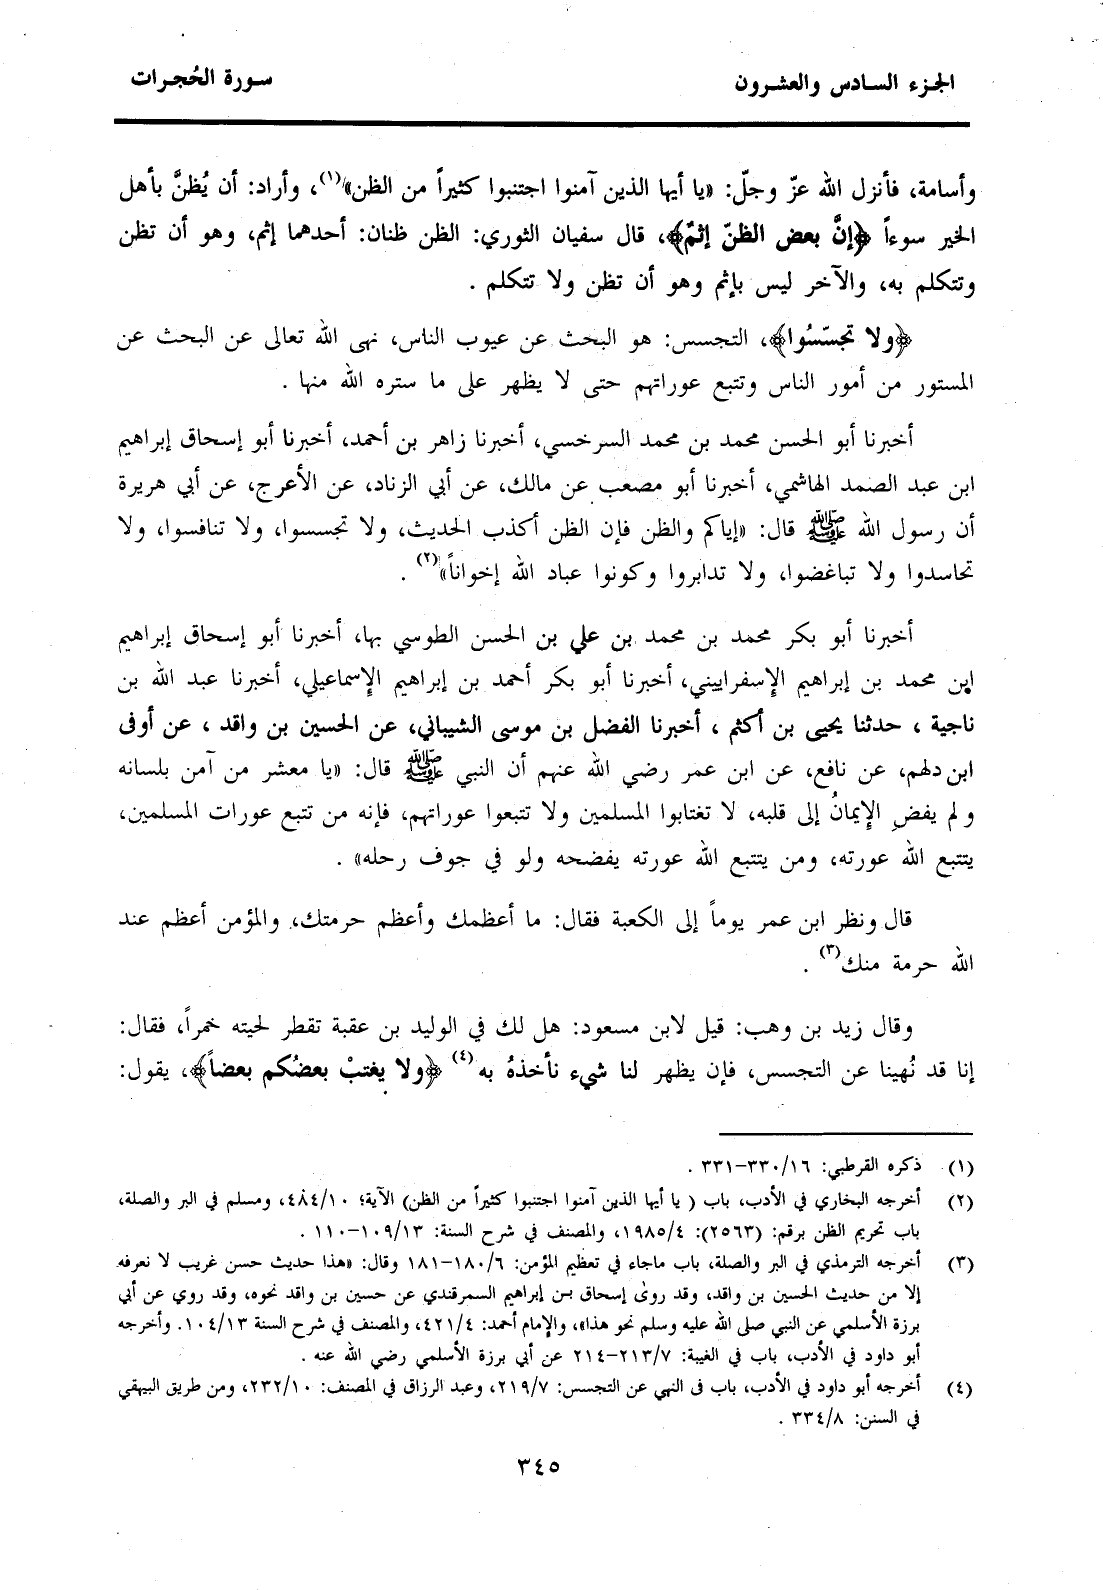 الجزء السادس والعشرون
سورة الحُجرات
وأسامة، فأنزل الله عزّ وجلّ: «يا أيها الذين آمنوا اجتنبوا كثيراً من الظن»(١)، وأراد: أن يُظنَّ بأهل
الخير سوءاً ﴿إنَّ بعض الظنّ إثمٌ﴾، قال سفيان الثوري: الظن ظنان: أحدهما إثم، وهو أن تظن
وتتكلم به، والآخر ليس بإثم وهو أن تظن ولا تتكلم .
﴿ولا تجسّسُوا﴾، التجسس: هو البحث عن عيوب الناس، نهى الله تعالى عن البحث عن
المستور من أمور الناس وتتبع عوراتهم حتى لا يظهر على ما ستره الله منها .
أخبرنا أبو الحسن محمد بن محمد السرخسي، أخبرنا زاهر بن أحمد، أخبرنا أبو إسحاق إبراهيم
ابن عبد الصمد الهاشمي، أخبرنا أبو مصعب عن مالك، عن أبي الزناد، عن الأعرج، عن أبي هريرة
أن رسول الله ﷺ قال: «إياكم والظن فإن الظن أكذب الحديث، ولا تجسسوا، ولا تنافسوا، ولا
تحاسدوا ولا تباغضوا، ولا تدابروا وكونوا عباد الله إخواناً»(٢) .
أخبرنا أبو بكر محمد بن محمد بن علي بن الحسن الطوسي بها، أخبرنا أبو إسحاق إبراهيم
ابن محمد بن إبراهيم الإسفراييني، أخبرنا أبو بكر أحمد بن إبراهيم الإسماعيلي، أخبرنا عبد الله بن
ناجية ، حدثنا يحيى بن أكثم ، أخبرنا الفضل بن موسى الشيباني، عن الحسين بن واقد ، عن أوفى
ابن دلهم، عن نافع، عن ابن عمر رضي الله عنهم أن النبي ﷺ قال: «يا معشر من آمن بلسانه
ولم يفضِ الإيمانُ إلى قلبه، لا تغتابوا المسلمين ولا تتبعوا عوراتهم، فإنه من تتبع عورات المسلمين،
يتتبع الله عورته، ومن يتتبع الله عورته يفضحه ولو في جوف رحله» .
قال ونظر ابن عمر يوماً إلى الكعبة فقال: ما أعظمك وأعظم حرمتك، والمؤمن أعظم عند
الله حرمة منك(٣) .
وقال زيد بن وهب: قيل لابن مسعود: هل لك في الوليد بن عقبة تقطر لحيته خمراً، فقال:
إنا قد نُهينا عن التجسس، فإن يظهر لنا شيء نأخذهُ به(٤) ﴿ولا يغتبْ بعضُكم بعضاً﴾، يقول:
(١) ذكره القرطبي: ١٦/ ٣٣٠-٣٣١ .
(٢) أخرجه البخاري في الأدب، باب ( يا أيها الذين آمنوا اجتنبوا كثيراً من الظن) الآية؛ ١٠/ ٤٨٤، ومسلم في البر والصلة،
باب تحريم الظن برقم: (٢٥٦٣): ٤/ ١٩٨٥، والمصنف في شرح السنة: ١٣/ ١٠٩-١١٠ .
(٣) أخرجه الترمذي في البر والصلة، باب ماجاء في تعظيم المؤمن: ٦/ ١٨٠-١٨١ وقال: «هذا حديث حسن غريب لا نعرفه
إلا من حديث الحسين بن واقد، وقد روىٰ إسحاق بن إبراهيم السمرقندي عن حسين بن واقد نحوه، وقد روي عن أبي
برزة الأسلمي عن النبي صلى الله عليه وسلم نحو هذا»، والإمام أحمد: ٤/ ٤٢١، والمصنف في شرح السنة ١٣/ ١٠٤. وأخرجه
أبو داود في الأدب، باب في الغيبة: ٧/ ٢١٣-٢١٤ عن أبي برزة الأسلمي رضي الله عنه .
(٤) أخرجه أبو داود في الأدب، باب فى النهي عن التجسس: ٧/ ٢١٩، وعبد الرزاق في المصنف: ١٠/ ٢٣٢، ومن طريق البيهقي
في السنن: ٨/ ٣٣٤ .
٣٤٥